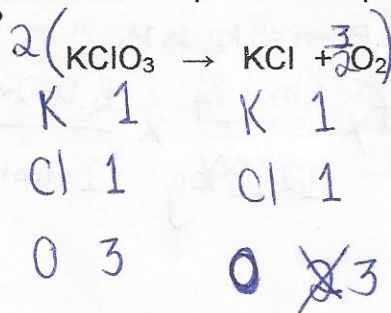 2(KClO₃ → KCl + 3/2 O₂)
K 1 K 1
Cl 1 Cl 1
O 3 O 2 3